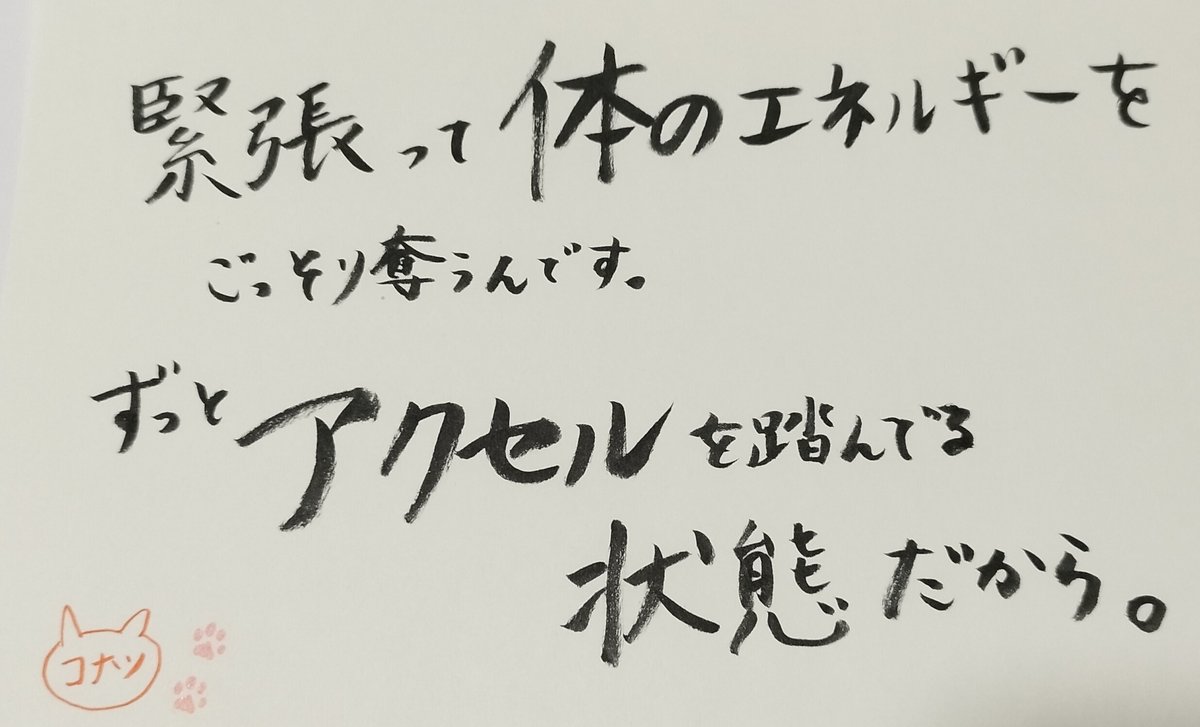 緊張って体のエネルギーを
ごっそり奪うんです。
ずっとアクセルを踏んでる
状態だから。
コナツ